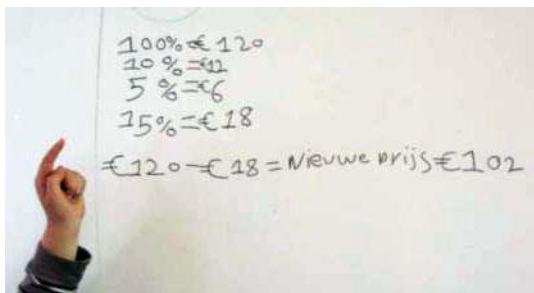 100% = € 120
10 % = €12
5 % = €6
15% = € 18
€120 - € 18 = Nieuwe prijs €102